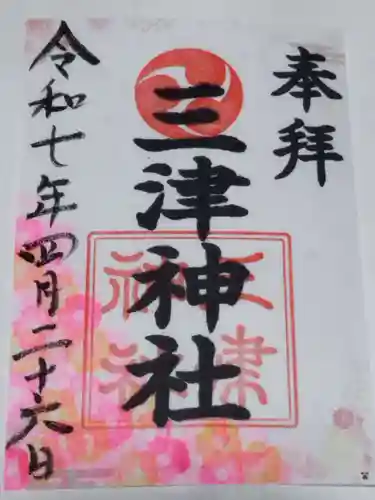 奉拝
三津神社
三津
神社
令和七年四月二十六日